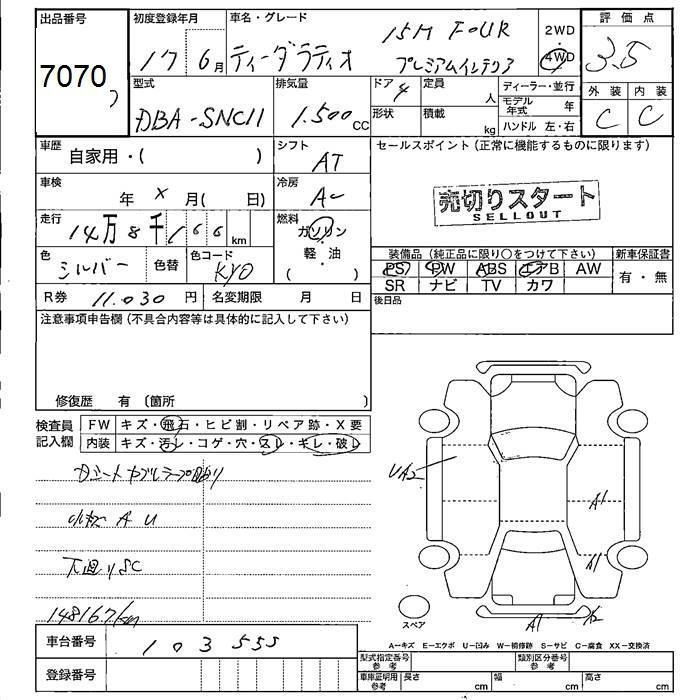 出品番号 初度登録年月 車名・グレード 15M FOUR 2WD 評価点
7070 17 6月 ティーダラティオ プレミアムインテリア 4WD 3.5
型式 排気量 ドア 4 定員 人 ディーラー・並行 外装 内装
DBA-SNC11 1.500 CC 形状 積載 kg モデル年式 年 C C
ハンドル 左・右
車歴 自家用・( ) シフト AT セールスポイント(正常に機能するものに限ります)
車検 年 × 月( 日) 冷房 AC
売切りスタート
SELLOUT
走行 14万8千166km 燃料 ガソリン・軽・油( )
色 シルバー 色替 色コード KY0
装備品(純正品に限り○をつけて下さい) 新車保証書
PS PW ABS エアB AW 有・無
SR ナビ TV カワ
R券 11.030円 名変期限 月 日 後日品
注意事項申告欄(不具合内容等は具体的に記入して下さい)
修復歴 有 〔箇所 〕
検査員記入欄 FW キズ・飛石・ヒビ割・リペア跡・X要
内装 キズ・汚レ・コゲ・穴・スレ・キレ・破レ
UA2
A1
小キズ A U
A1
下廻りSC
148167km
スペア
A1
A2
A-キズ E-エクボ U-凹み W-補修跡 S-サビ C-腐食 XX-交換済
車台番号 103555
型式指定番号 参考 類別区分番号 参考
登録番号 車庫証明用 参考 長さ cm 幅 cm 高さ cm